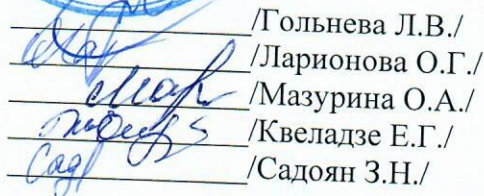 /Гольнева Л.В./
/Ларионова О.Г./
/Мазурина О.А./
/Квеладзе Е.Г./
/Садоян З.Н./